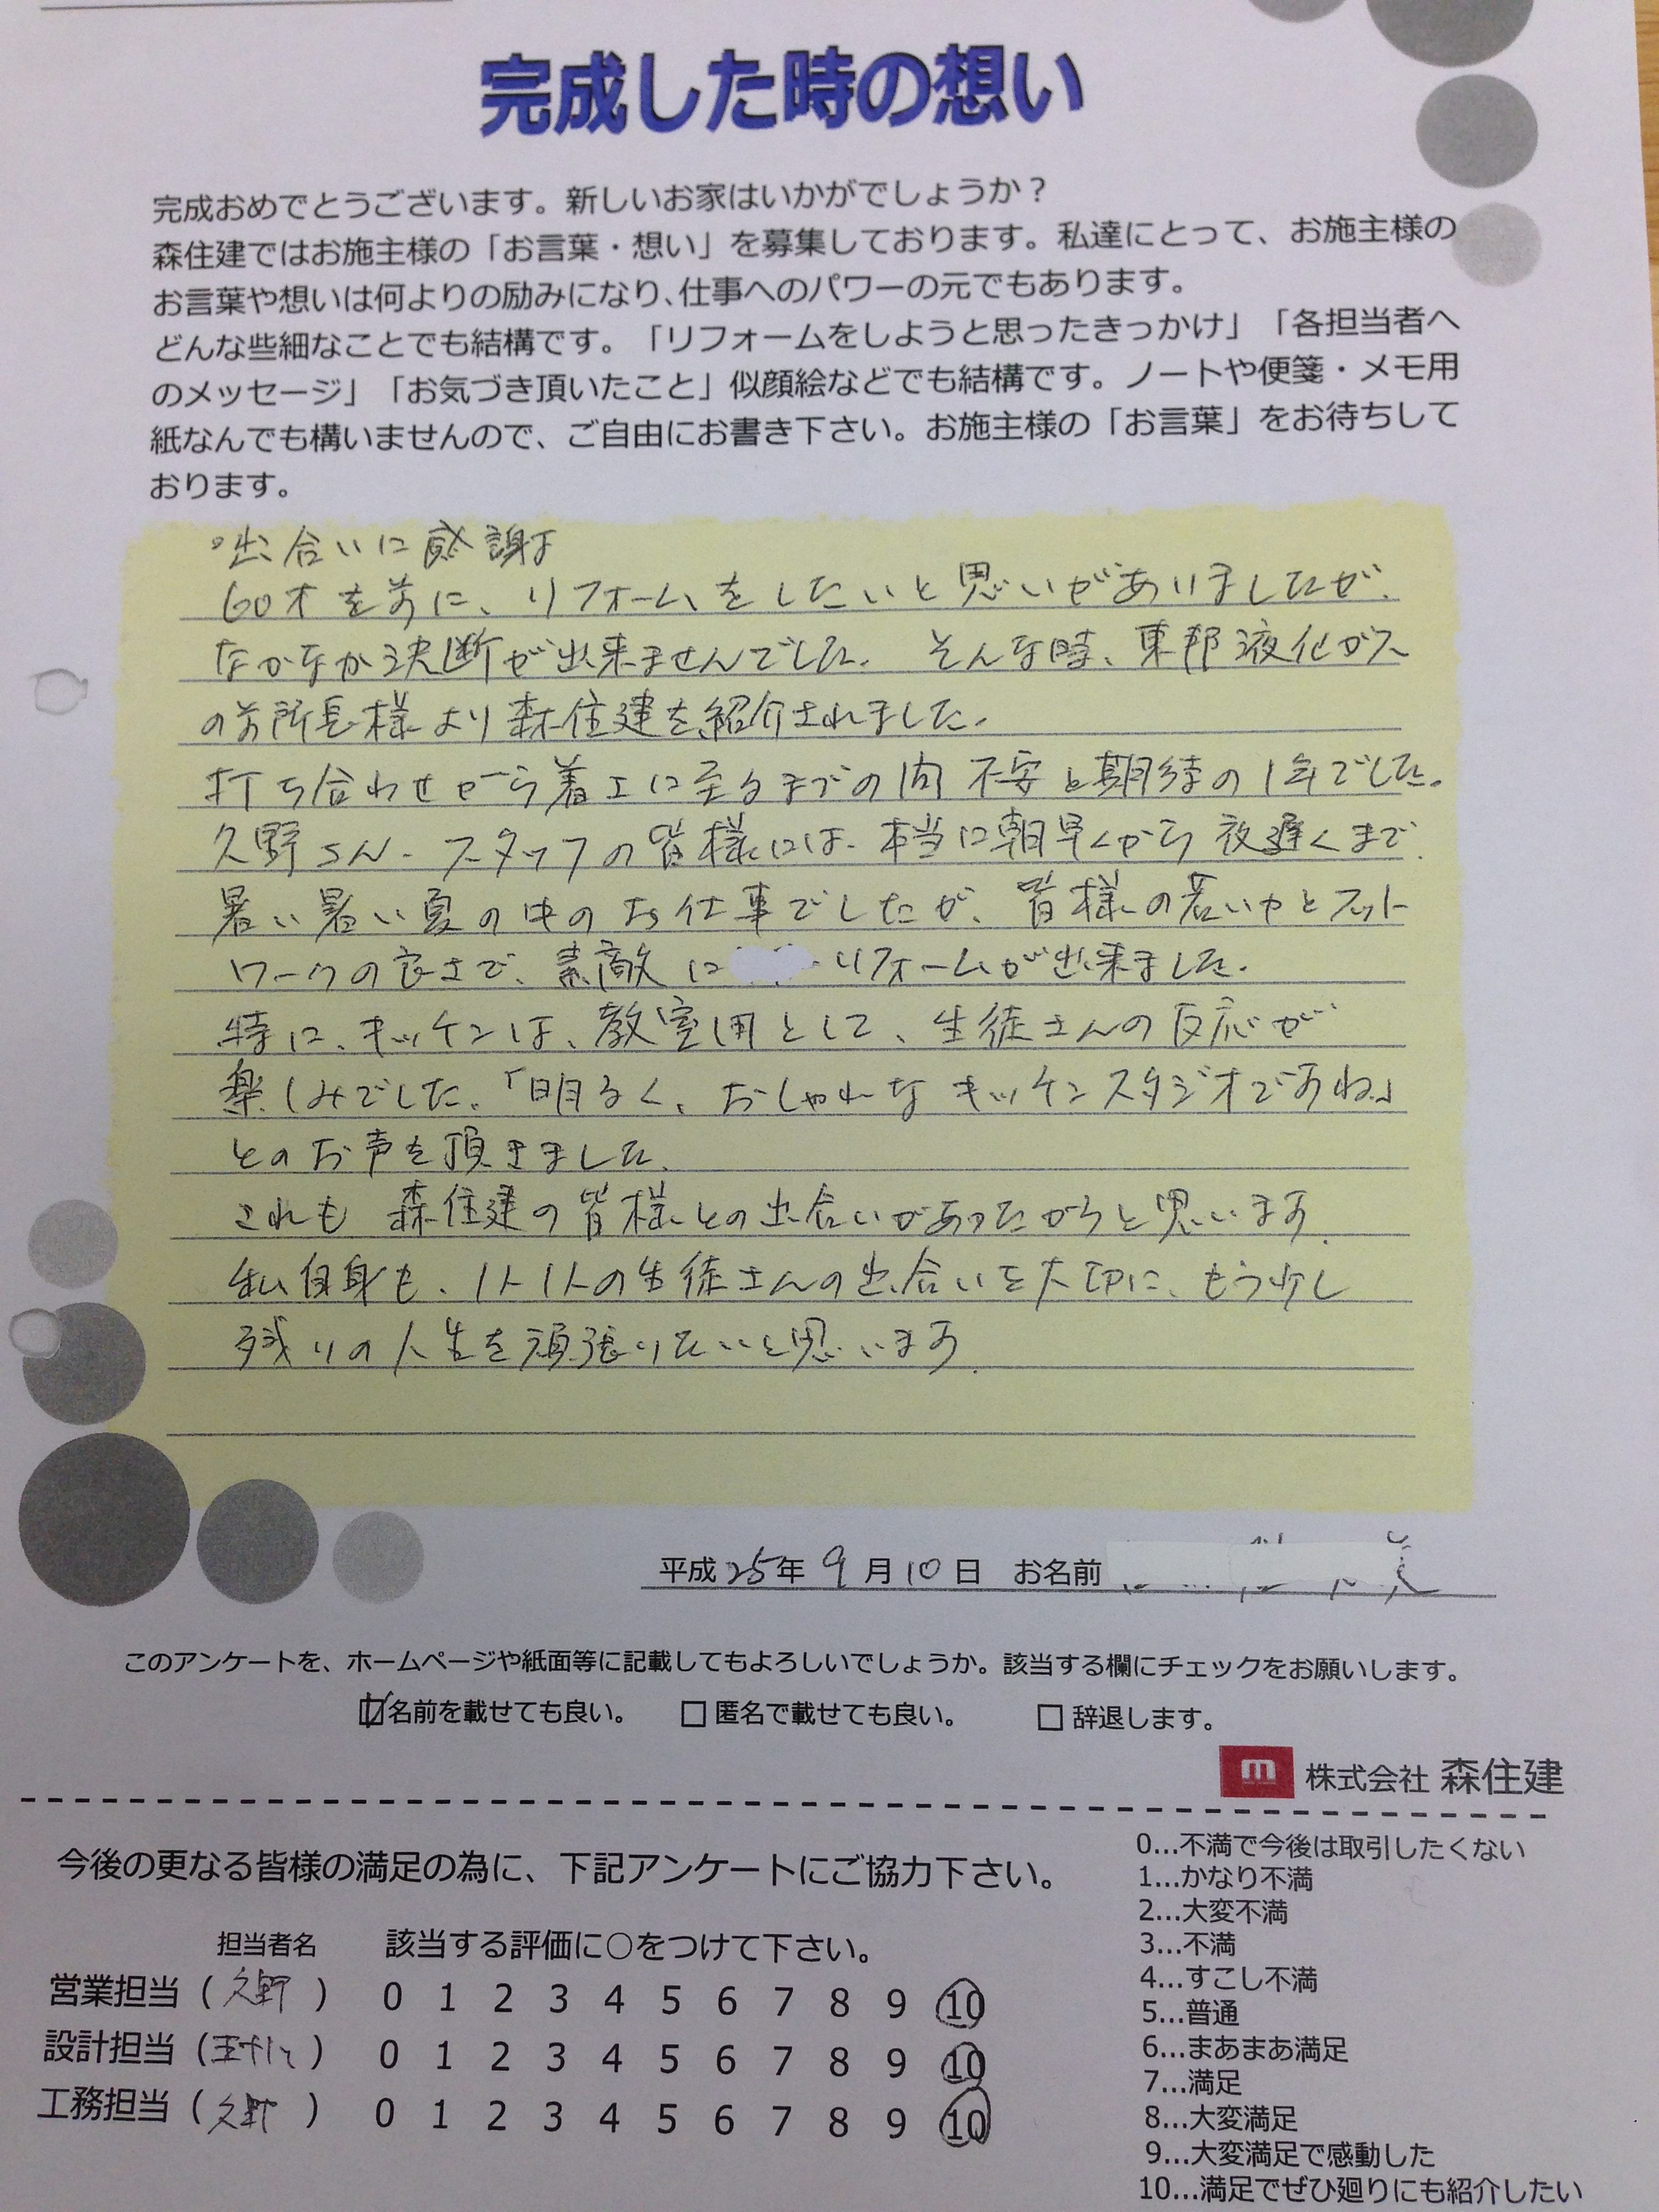 完成した時の想い
完成おめでとうございます。新しいお家はいかがでしょうか？
森住建ではお施主様の「お言葉・想い」を募集しております。私達にとって、お施主様の
お言葉や想いは何よりの励みになり、仕事へのパワーの元でもあります。
どんな些細なことでも結構です。「リフォームをしようと思ったきっかけ」「各担当者へ
のメッセージ」「お気づき頂いたこと」似顔絵などでも結構です。ノートや便箋・メモ用
紙なんでも構いませんので、ご自由にお書き下さい。お施主様の「お言葉」をお待ちして
おります。
°出合いに感謝す
60才を前に、リフォームをしたいと思いがありましたが、
なかなか決断が出来ませんでした。そんな時、東邦液化ガス
の前所長様より森住建を紹介されました。
打ち合わせから着工に至るまでの間 不安と期待の1年でした。
久野さん、スタッフの皆様には、本当に朝早くから夜遅くまで
暑い暑い夏の中のお仕事でしたが、皆様の若い力とフット
ワークの良さで、素敵に リフォームが出来ました。
特に、キッチンは、教室用として、生徒さんの反応が
楽しみでした。「明るく、おしゃれなキッチンスタジオですね。」
とのお声を頂きました。
これも 森住建の皆様との出合いがあったからと思います。
私自身も、1人1人の生徒さんの出合いを大切に、もう少し
残りの人生を頑張りたいと思います。
平成25年 9月10日 お名前
このアンケートを、ホームページや紙面等に記載してもよろしいでしょうか。該当する欄にチェックをお願いします。
☑名前を載せても良い。 □匿名で載せても良い。 □辞退します。
m 株式会社 森住建
今後の更なる皆様の満足の為に、下記アンケートにご協力下さい。
担当者名 該当する評価に○をつけて下さい。
営業担当（久野） 0 1 2 3 4 5 6 7 8 9 10
設計担当（ ） 0 1 2 3 4 5 6 7 8 9 10
工務担当（久野） 0 1 2 3 4 5 6 7 8 9 10
0…不満で今後は取引したくない
1…かなり不満
2…大変不満
3…不満
4…すこし不満
5…普通
6…まあまあ満足
7…満足
8…大変満足
9…大変満足で感動した
10…満足でぜひ廻りにも紹介したい